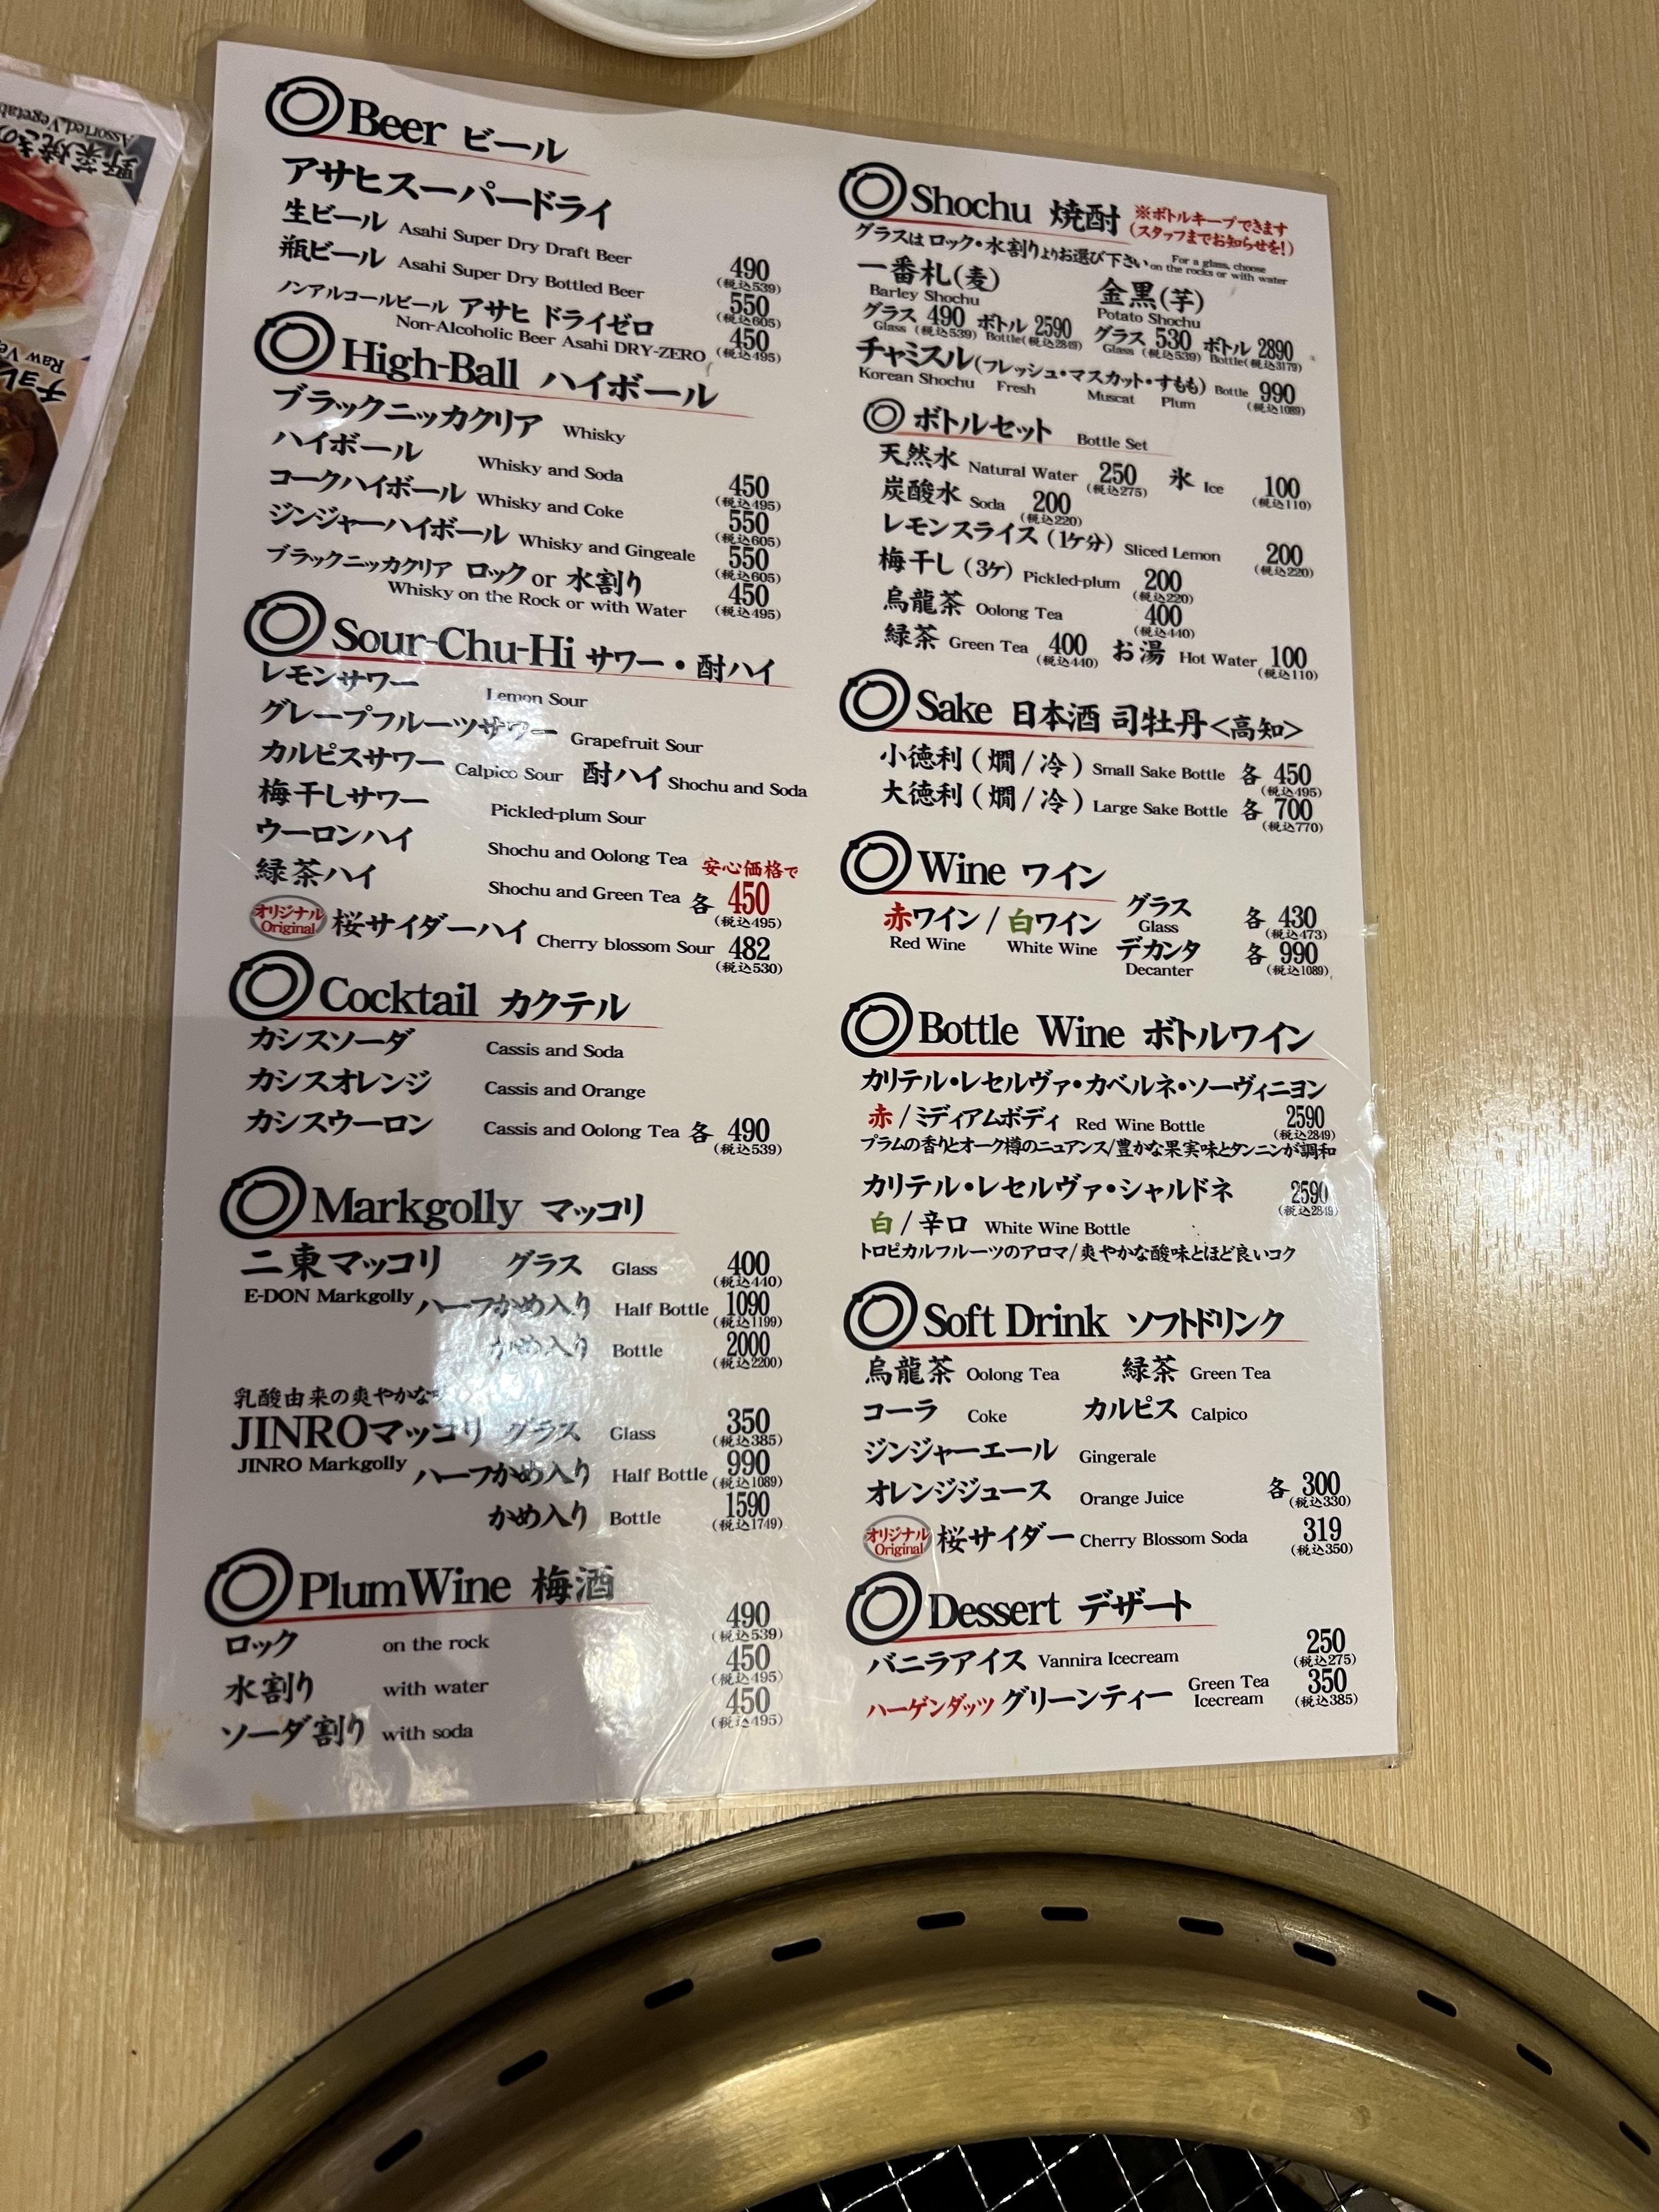 Beer ビール
アサヒスーパードライ
生ビール Asahi Super Dry Draft Beer 490
(税込539)
瓶ビール Asahi Super Dry Bottled Beer 550
(税込605)
ノンアルコールビール アサヒ ドライゼロ 450
Non-Alcoholic Beer Asahi DRY-ZERO (税込495)
High-Ball ハイボール
ブラックニッカクリア Whisky
ハイボール Whisky and Soda 450
(税込495)
コークハイボール Whisky and Coke 550
(税込605)
ジンジャーハイボール Whisky and Gingeale 550
(税込605)
ブラックニッカクリア ロック or 水割り 450
Whisky on the Rock or with Water (税込495)
Sour-Chu-Hi サワー・酎ハイ
レモンサワー Lemon Sour
グレープフルーツサワー Grapefruit Sour
カルピスサワー Calpico Sour 酎ハイ Shochu and Soda
梅干しサワー Pickled-plum Sour
ウーロンハイ Shochu and Oolong Tea 安心価格で
緑茶ハイ Shochu and Green Tea 各 450
(税込495)
オリジナル
Original
桜サイダーハイ Cherry blossom Sour 482
(税込530)
Cocktail カクテル
カシスソーダ Cassis and Soda
カシスオレンジ Cassis and Orange
カシスウーロン Cassis and Oolong Tea 各 490
(税込539)
Markgolly マッコリ
二東マッコリ グラス Glass 400
(税込440)
E-DON Markgolly ハーフかめ入り Half Bottle 1090
(税込1199)
かめ入り Bottle 2000
(税込2200)
乳酸由来の爽やかな
JINROマッコリ グラス Glass 350
(税込385)
JINRO Markgolly ハーフかめ入り Half Bottle 990
(税込1089)
かめ入り Bottle 1590
(税込1749)
PlumWine 梅酒
ロック on the rock 490
(税込539)
水割り with water 450
(税込495)
ソーダ割り with soda 450
(税込495)
Shochu 焼酎 ※ボトルキープできます
(スタッフまでお知らせを!)
グラスは ロック・水割りよりお選び下さい For a glass, choose
on the rocks or with water
一番札(麦)
Barley Shochu
グラス 490 ボトル 2590
Glass (税込539) Bottle(税込2849)
金黒(芋)
Potato Shochu
グラス 530 ボトル 2890
Glass (税込539) Bottle(税込3179)
チャミスル(フレッシュ・マスカット・すもも) Bottle 990
Korean Shochu Fresh Muscat Plum (税込1089)
ボトルセット Bottle Set
天然水 Natural Water 250 氷 Ice 100
(税込275) (税込110)
炭酸水 Soda 200
(税込220)
レモンスライス (1ケ分) Sliced Lemon 200
(税込220)
梅干し (3ケ) Pickled-plum 200
(税込220)
烏龍茶 Oolong Tea 400
(税込440)
緑茶 Green Tea 400 お湯 Hot Water 100
(税込440) (税込110)
Sake 日本酒 司牡丹<高知>
小徳利 (燗/冷) Small Sake Bottle 各 450
(税込495)
大徳利 (燗/冷) Large Sake Bottle 各 700
(税込770)
Wine ワイン
赤ワイン / 白ワイン
Red Wine White Wine
グラス 各 430
Glass (税込473)
デカンタ 各 990
Decanter (税込1089)
Bottle Wine ボトルワイン
カリテル・レセルヴァ・カベルネ・ソーヴィニヨン
赤 / ミディアムボディ Red Wine Bottle 2590
(税込2849)
プラムの香りとオーク樽のニュアンス/豊かな果実味とタンニンが調和
カリテル・レセルヴァ・シャルドネ 2590
(税込2849)
白 / 辛口 White Wine Bottle
トロピカルフルーツのアロマ/爽やかな酸味とほど良いコク
Soft Drink ソフトドリンク
烏龍茶 Oolong Tea 緑茶 Green Tea
コーラ Coke カルピス Calpico
ジンジャーエール Gingerale
オレンジジュース Orange Juice 各 300
(税込330)
オリジナル
Original
桜サイダー Cherry Blossom Soda 319
(税込350)
Dessert デザート
バニラアイス Vannira Icecream 250
(税込275)
ハーゲンダッツ グリーンティー Green Tea
Icecream
350
(税込385)
野菜焼きの
Assorted Vegetab
チョレ
Raw Ve